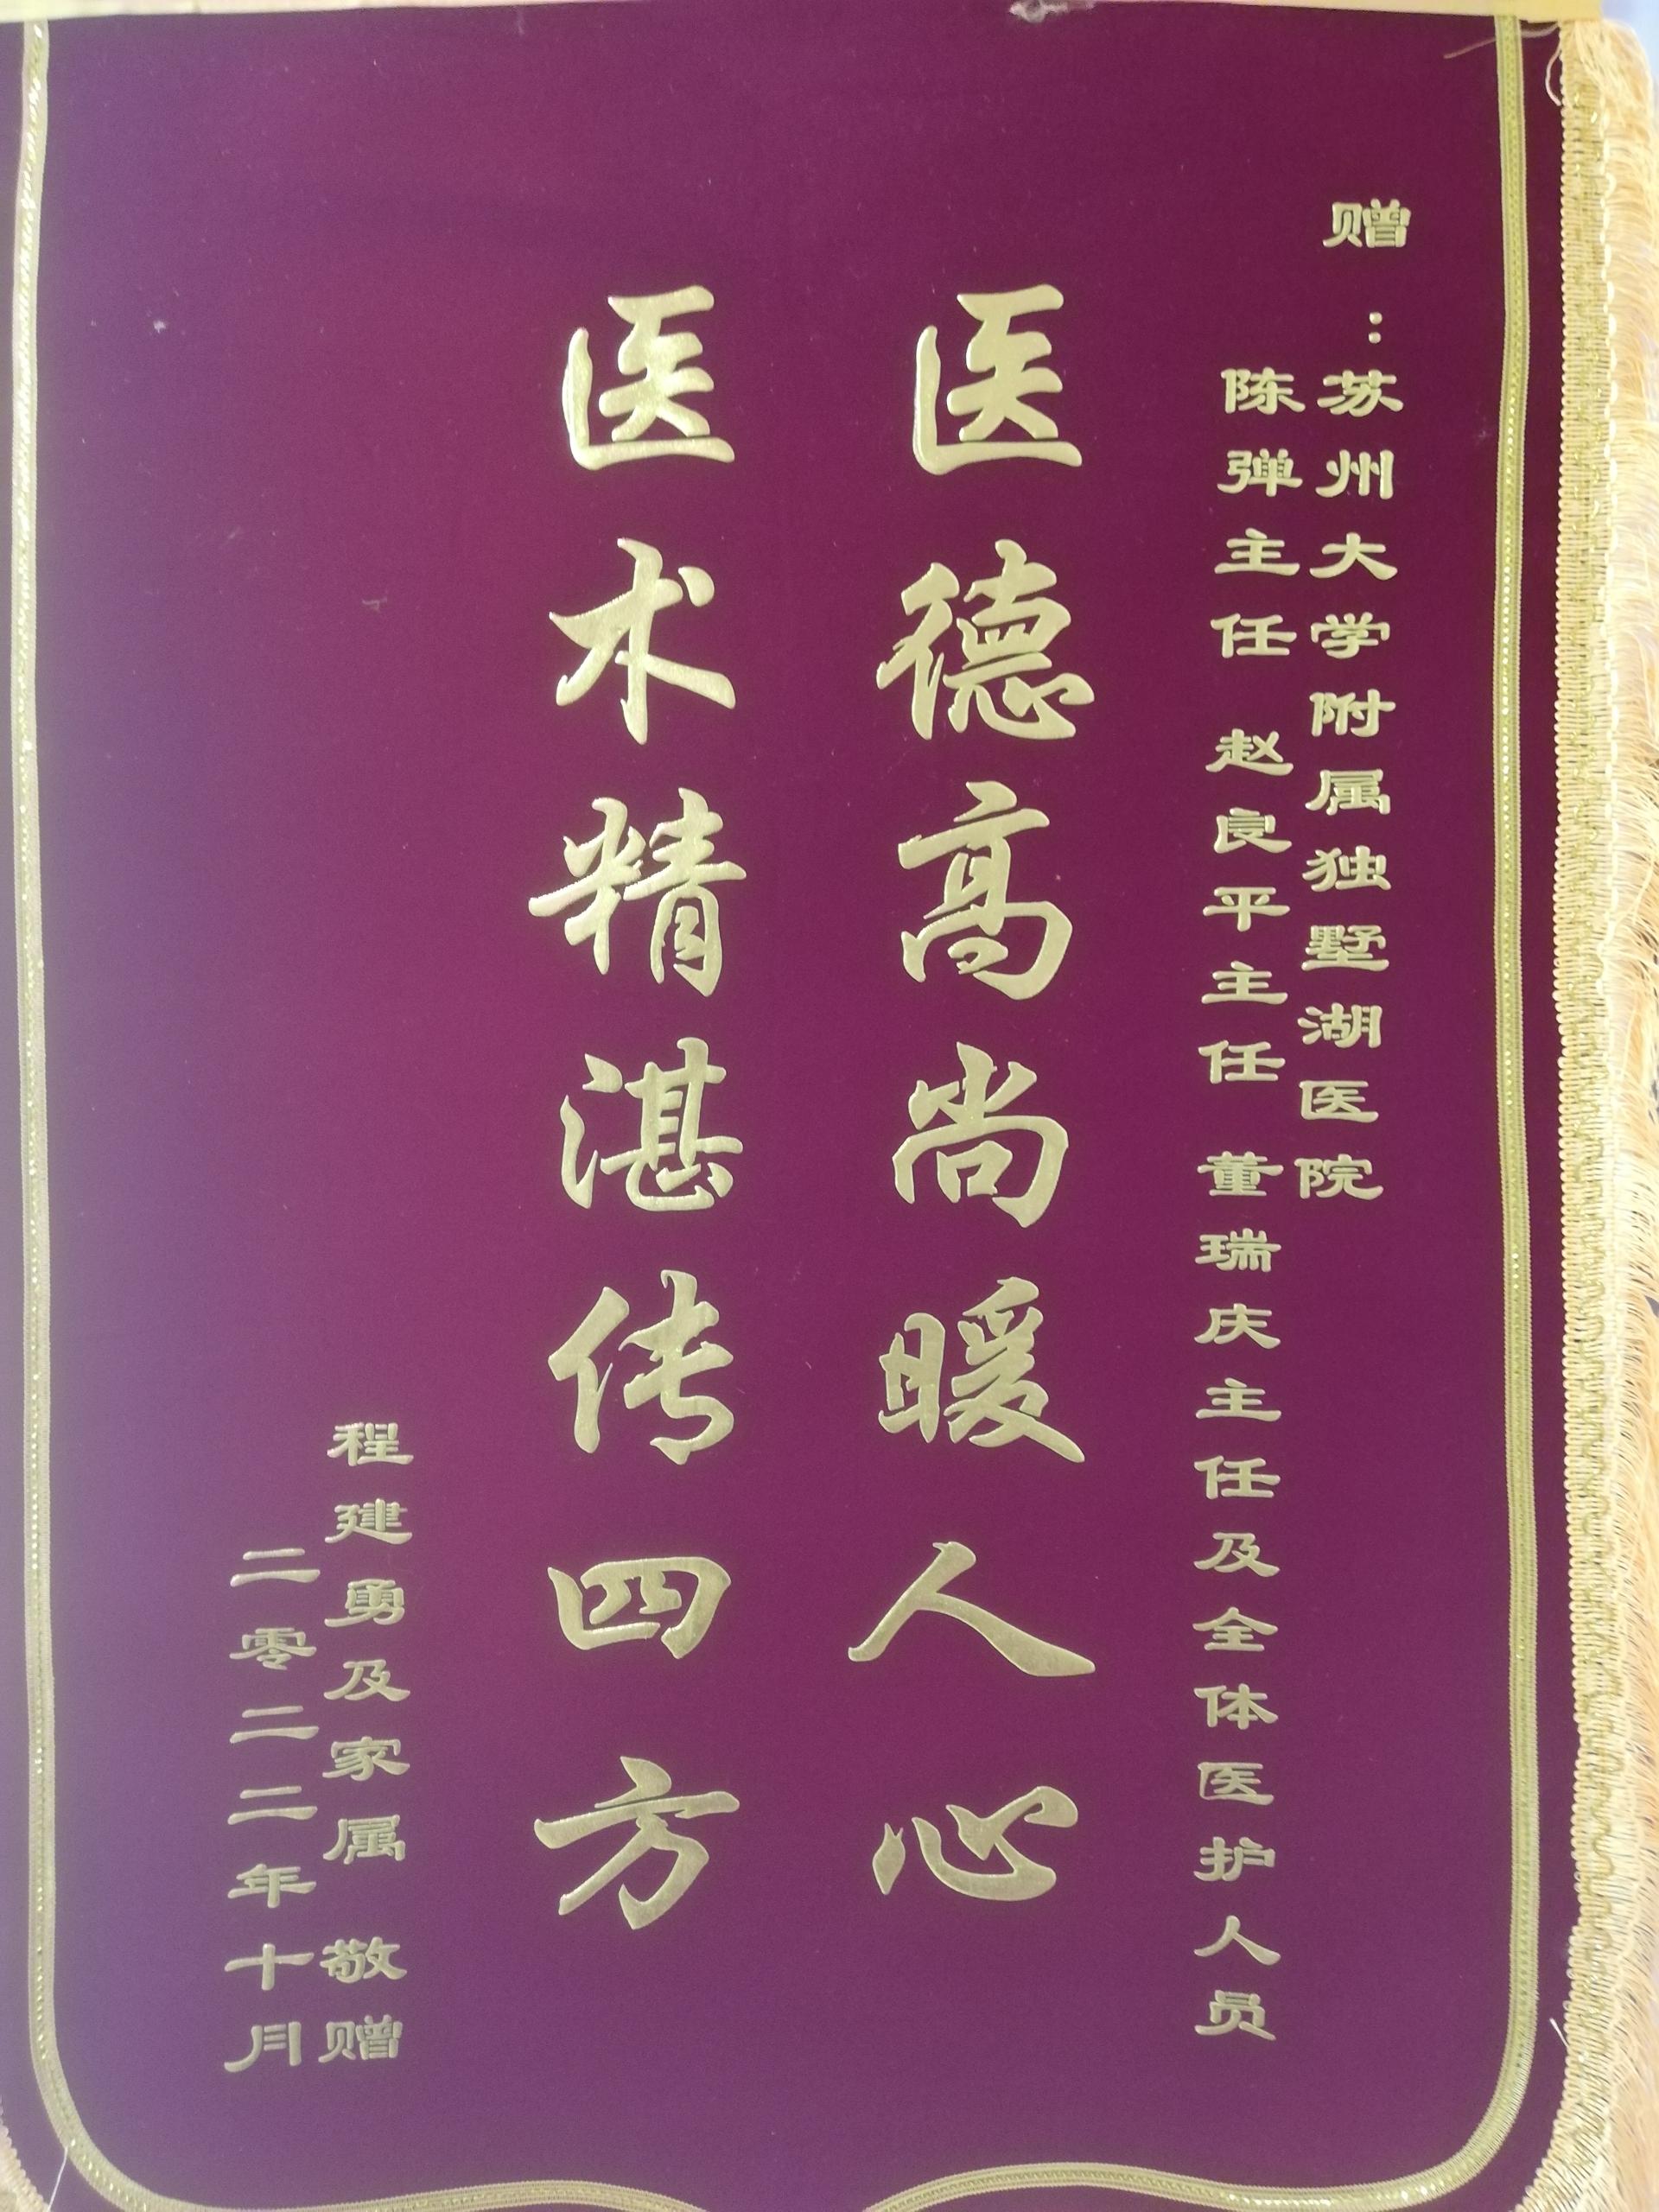 赠：苏州大学附属独墅湖医院
陈弹主任 赵良平主任 董瑞庆主任及全体医护人员
医德高尚暖人心
医术精湛传四方
程建勇及家属 敬赠
二零二二年十月